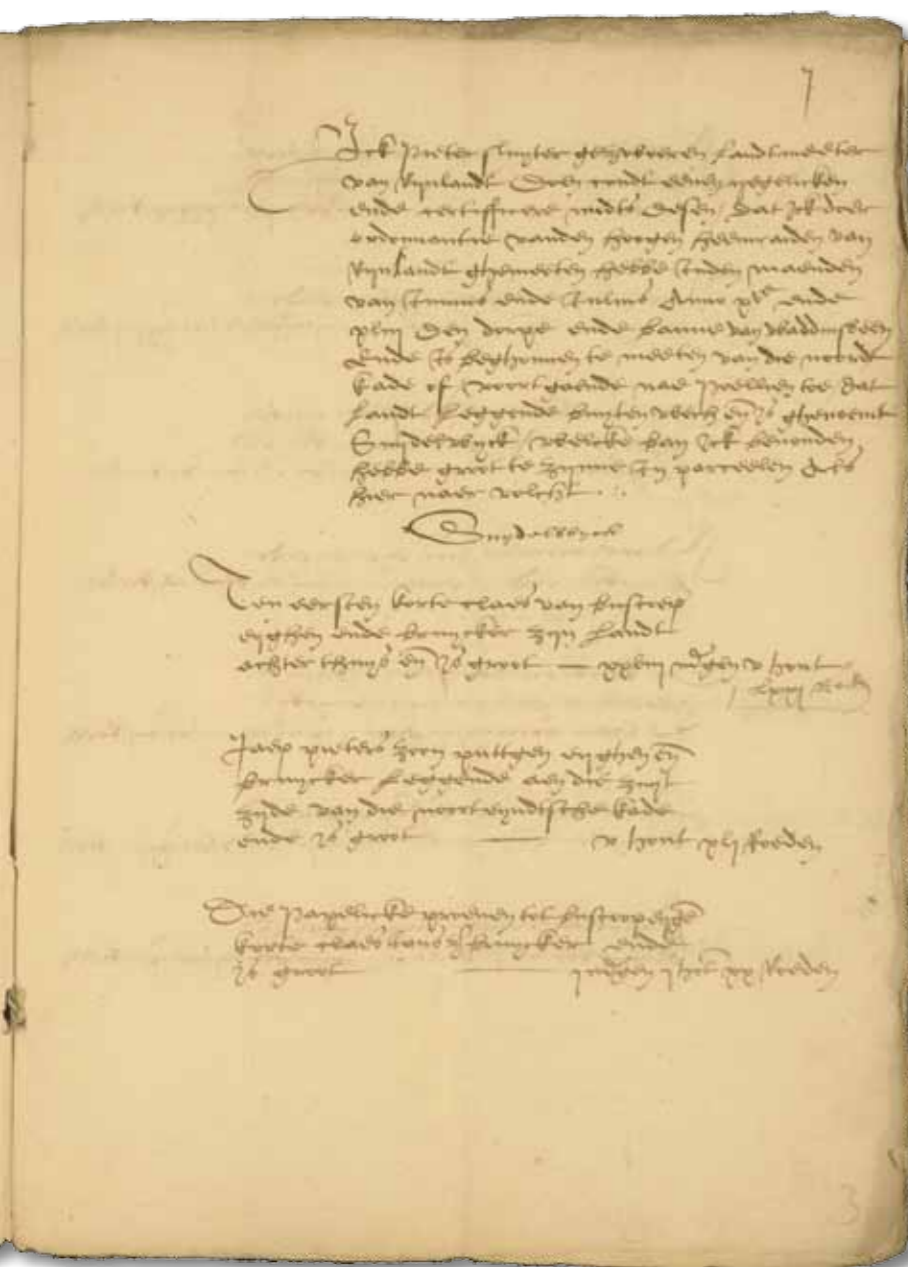 1
Ick Pieter sluyter geszwoeren Landtmeeter
van Rijnlandt Doen condt eenen yegelicken
ende certifficere midts desen, dat ick deer
ordonnantie vanden hoogen heemraiden van
Rijnlandt ghemeeten hebbe inden maenden
van Iunius ende Iulius Anno ende
xliij Den dorpe ende banne van Waddinxveen
Ende is beghonnen te meeten van die noordt
kade of voort gaende nae toe dat
landt leggende buyten wech en is ghenoemt
Snijdelwijck, welcke ban ick bevonden
hebbe groot te zijnne in parceelen als
hier naer volcht
Snijdelwijck
Ten eersten korte claes van
eijghen ende bruijcker zijn landt
achter thuijs en is groot — xxviij mergen v hont
roeden
Jaep pieters zoon puttgen eijghen en
bruijcker leggende aen die zuijt
zijde van die noort eyndtsche kade
ende is groot — v hont xlj Roeden
Die papelicke proenen tot
korte claes bruijcker ende
is groot — j mergen j hont xx Roeden
3